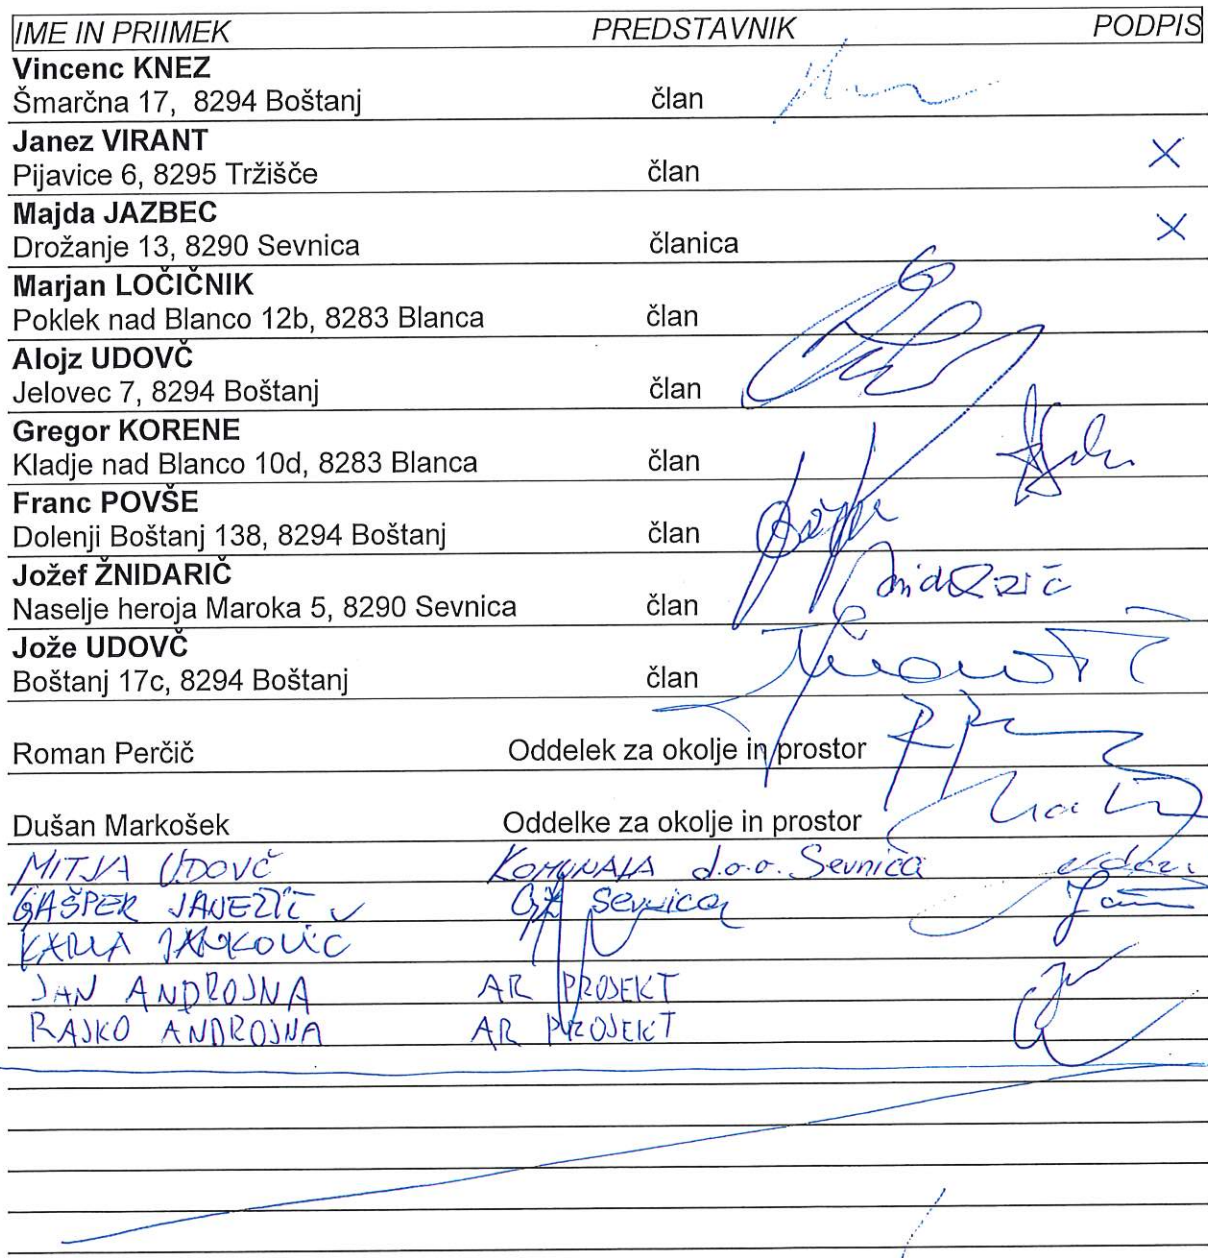 IME IN PRIIMEK PREDSTAVNIK PODPIS
Vincenc KNEZ
Šmarčna 17, 8294 Boštanj član
Janez VIRANT
Pijavice 6, 8295 Tržišče član X
Majda JAZBEC
Drožanje 13, 8290 Sevnica članica X
Marjan LOČIČNIK
Poklek nad Blanco 12b, 8283 Blanca član
Alojz UDOVČ
Jelovec 7, 8294 Boštanj član
Gregor KORENE
Kladje nad Blanco 10d, 8283 Blanca član
Franc POVŠE
Dolenji Boštanj 138, 8294 Boštanj član
Jožef ŽNIDARIČ
Naselje heroja Maroka 5, 8290 Sevnica član
Jože UDOVČ
Boštanj 17c, 8294 Boštanj član
Roman Perčič Oddelek za okolje in prostor
Dušan Markošek Oddelke za okolje in prostor
MITJA UDOVČ KOMUNALA d.o.o. Sevnica
GAŠPER JANEŽIČ Sevnica
JANKOVIČ
JAN ANDROJNA AR PROJEKT
RAJKO ANDROJNA AR PROJEKT